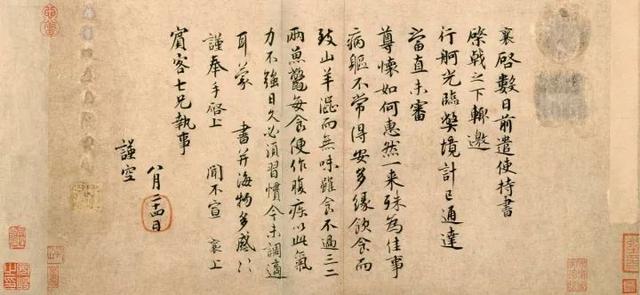 襄啓數日前遣使持書
棨戟之下輒邀
行舸光臨弊境計已通達
當直未審
尊懷如何惠然一來殊為佳事
病軀不常得安多緣飲食而
致山羊澁而無味雖食不過三二
兩魚鱉每食便作腹疾以此氣
力不強日久必須習慣今未調適
耳蒙 書并海物多感〻
謹奉手啓上 聞不宣 襄上
賓客七兄執事
八月廿四日
謹空